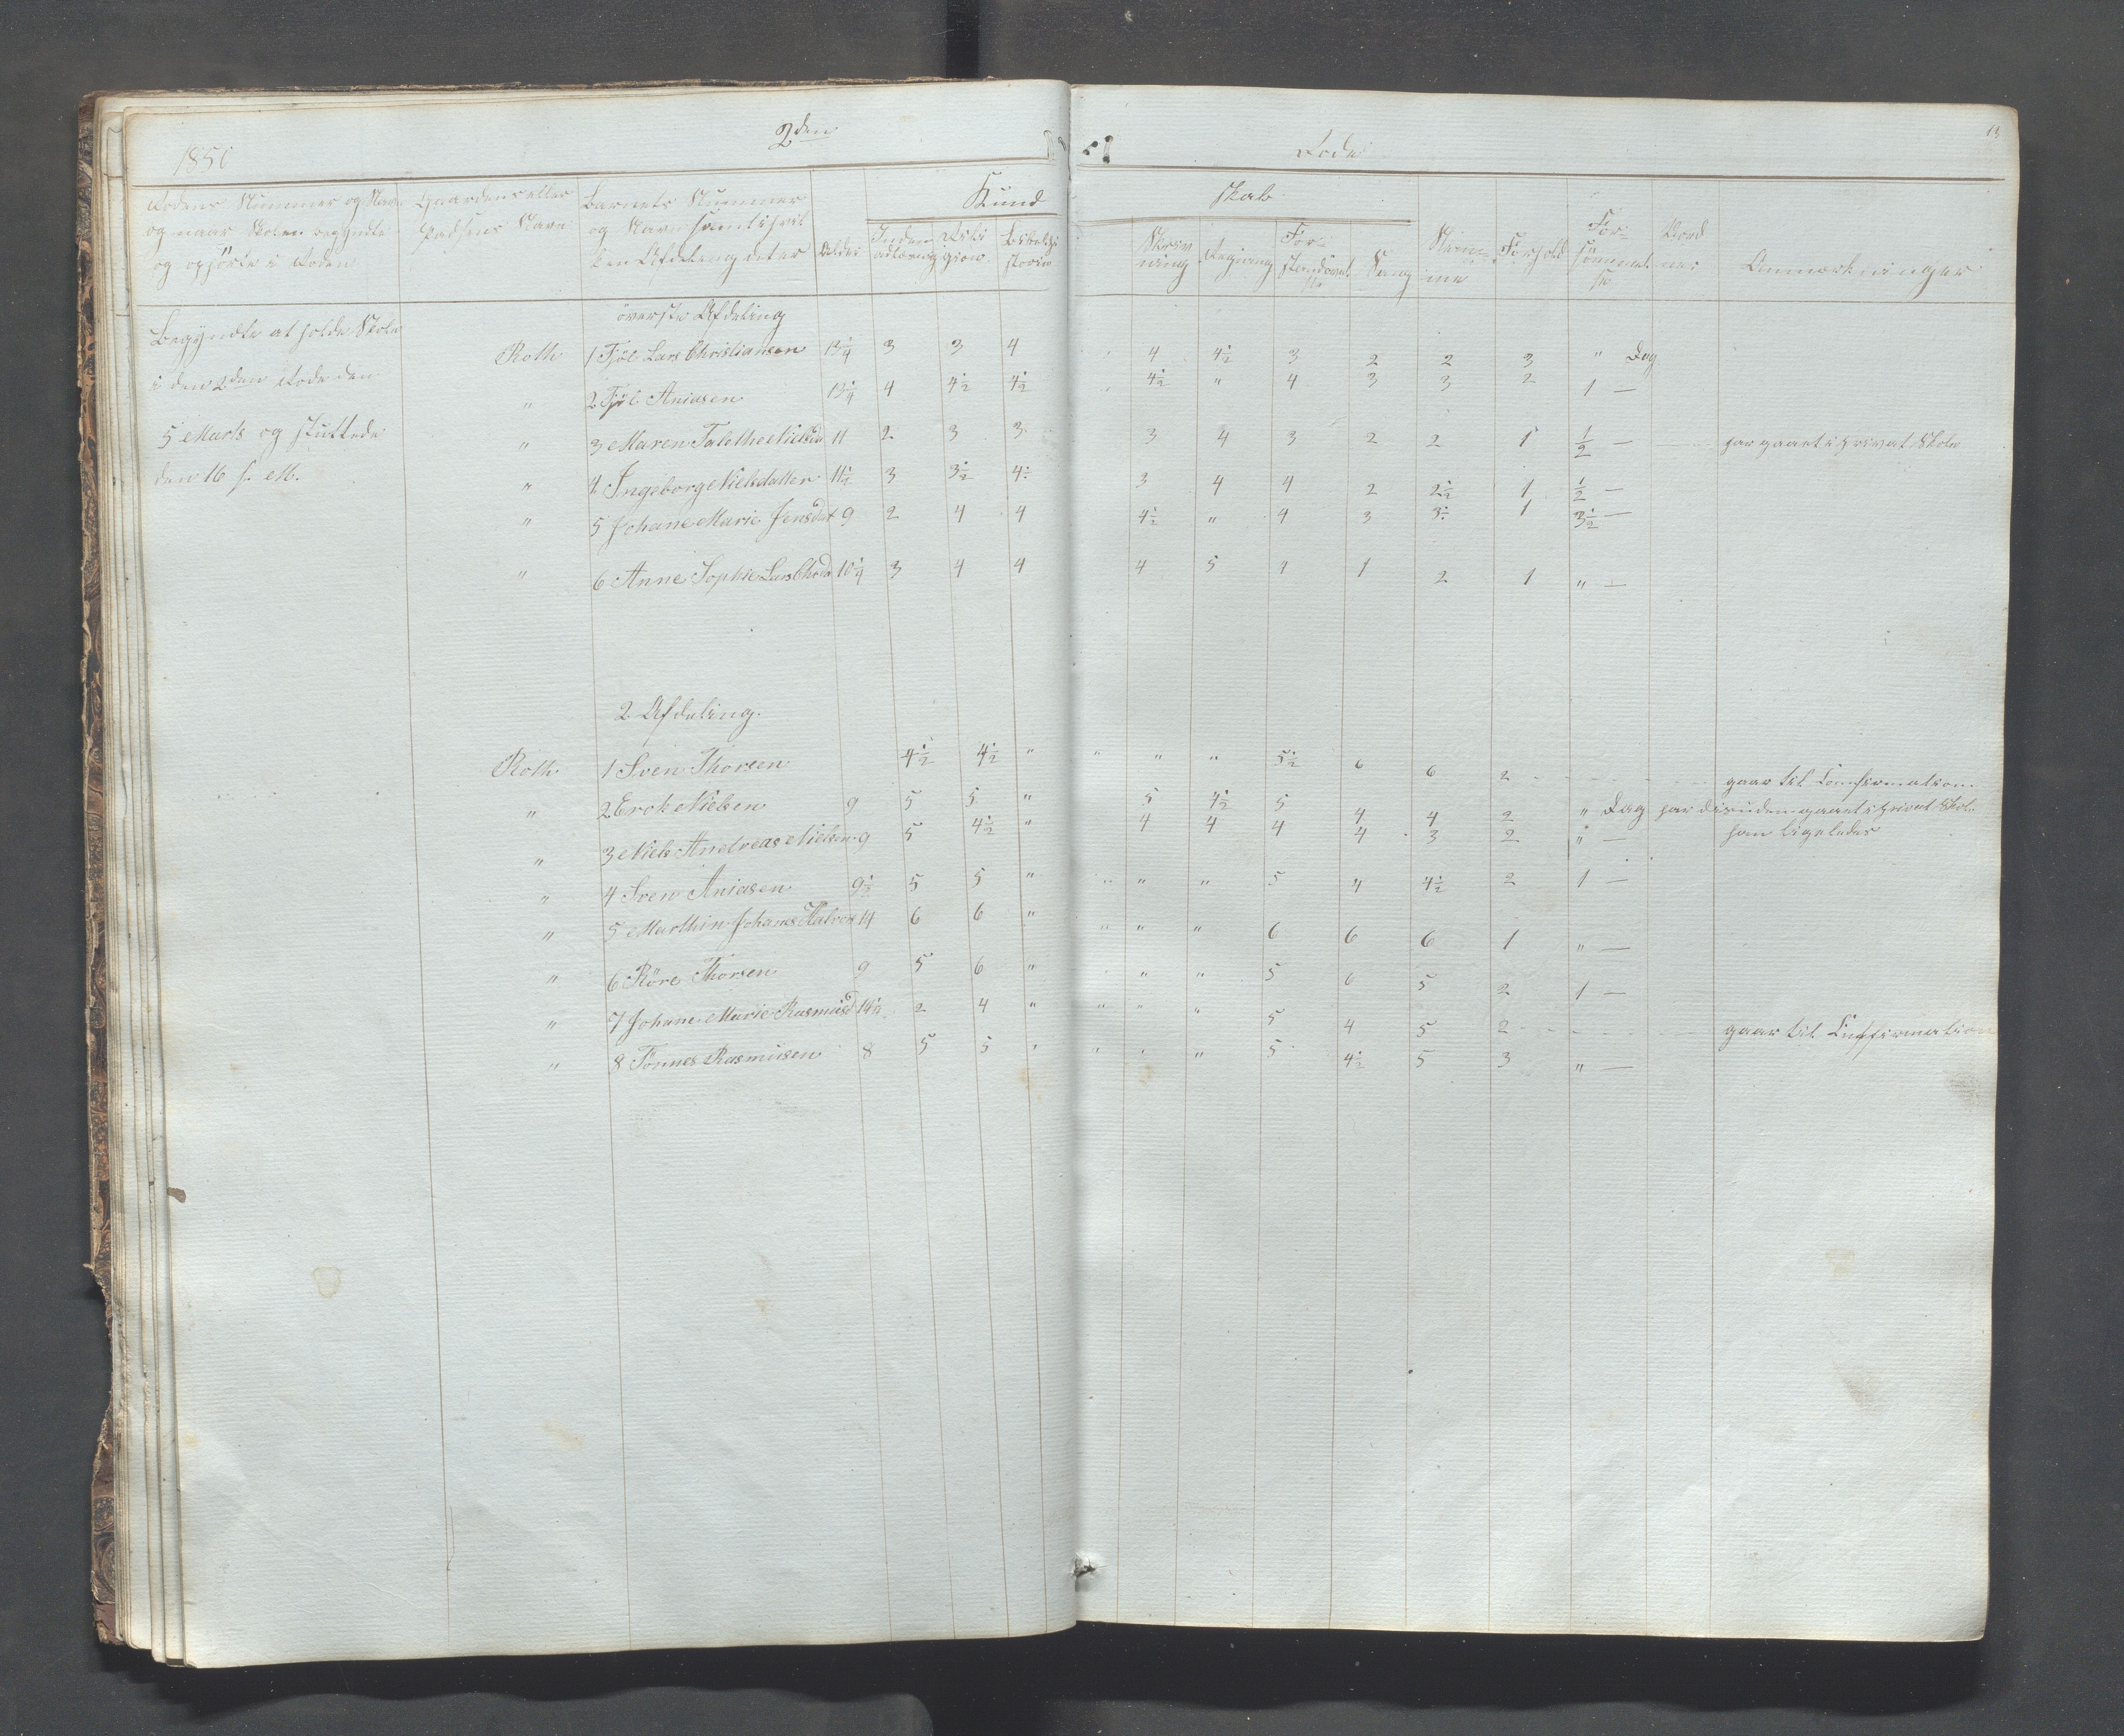 1850
2den
Rode
Rodens Nummer og Navn
og naar Skolen begyndte
og ophörte i Roden
Gaardens eller
Pladsens Navn
Barnets Nummer
og Navn samt i hvil
ken Afdeling det er
Alder
Kund
skab
Inden
adlæsnig
Reli
gion
Bibelhi
storie
Skriv
ning
Regning
For-
standsövel
se
Sang
Nem-
me
Forhold
For-
sömmel
se
Anmærkninger
Begyndte at holde Skole
i den 2den Rode den
5 Marts og sluttede
den 16 s. M.
överste Afdeling
Roth 1 Tjöl Lars Christiansen 13¼ 3 3 4 " 4 4½ 3 2 2 3 " Dag
" 2 Tjöl Aniasen 13¼ 4 4½ 4½ " 4½ " 4 3 3 2 1 —
" 3 Maren Talethe Nielsda 11 2 3 3 3 4 3 2 2 1 ½ — har gaaet i privat Skole
" 4 Ingeborg Nielsdatter 11½ 3 3½ 4 3 4 4 2 2½ 1 ½ —
" 5 Johane Marie Jensdat 9 2 4 4 4½ " 4 3 3 1 3½ —
" 6 Anne Sophie Lars Chrda 10¼ 3 4 4 4 5 4 1 2 1 " —
2 Afdeling.
Roth 1 Sven Thorsen 4½ 4½ " " " " 5½ 6 6 2 gaar til Confirmation
" 2 Erok Nielsen 9 5 5 " 5 4½ 5 4 4 2 " Dag har desuden gaaet i privat Skole
" 3 Niels Andreas Nielsen 9 5 4½ " 4 4 4 4 3 2 " — han ligeledes
" 4 Sven Aniasen 9½ 5 5 " " " " 5 4 4½ 2 1 —
" 5 Marthin Johanes Halvors 14 6 6 " " " " 6 6 6 1 " —
" 6 Röre Thorsen 9 5 6 " " " " 5 6 5 2 1 —
" 7 Johane Marie Rasmusd 14½ 2 4 " " " " 5 4 5 2 gaar til Confirmation
" 8 Tönnes Rasmusen 8 5 5 " " " " 5 4½ 5 3 " —